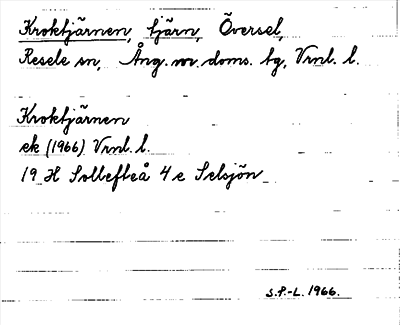 Kroktjärnen, tjärn, Översel,
Resele sn, Ång. nr. doms. tg, Vrnl. l.
Kroktjärnen
ek (1966) Vrnl. l.
19 H Sollefteå 4 e Selsjön
S.P.-L. 1966.